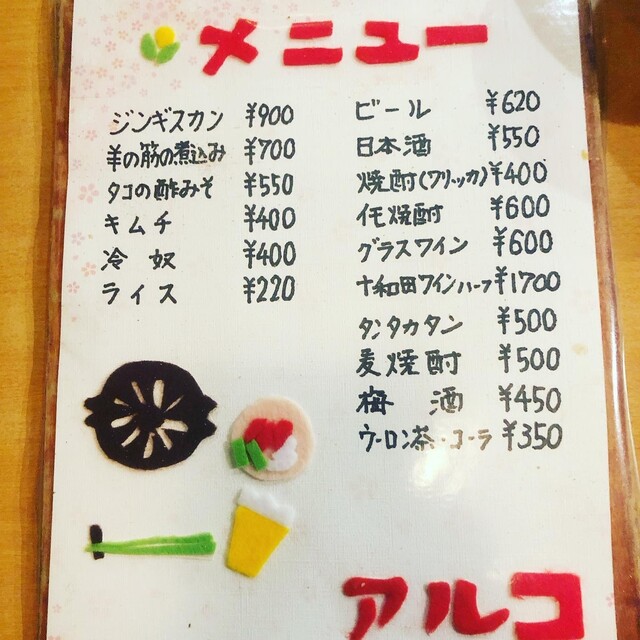 メニュー
ジンギスカン ¥900
羊の筋の煮込み ¥700
タコの酢みそ ¥550
キムチ ¥400
冷奴 ¥400
ライス ¥220
ビール ¥620
日本酒 ¥550
焼酎(ワリッカ) ¥400
イモ焼酎 ¥600
グラスワイン ¥600
十和田ワインハーフ ¥1700
タンタカタン ¥500
麦焼酎 ¥500
梅酒 ¥450
ウーロン茶・コーラ ¥350
アルコ